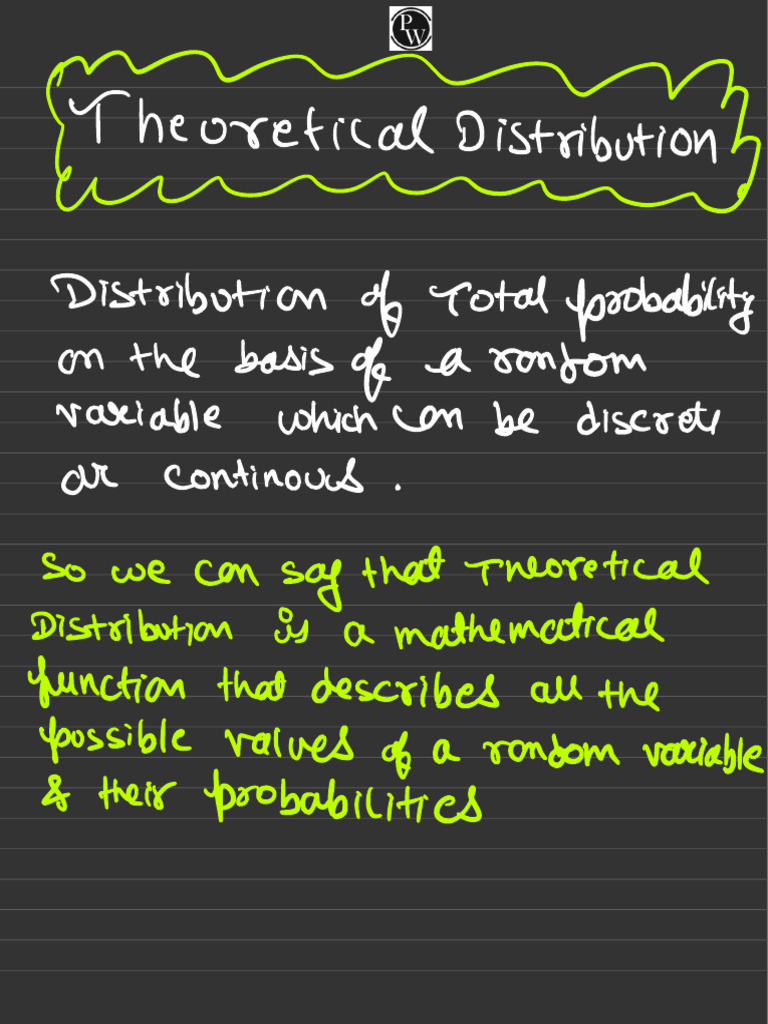 PW
Theoretical Distribution
Distribution of Total probability
on the basis of a random
variable which can be discrete
or continous.
So we can say that Theoretical
Distribution is a mathematical
function that describes all the
possible values of a random variable
& their probabilities